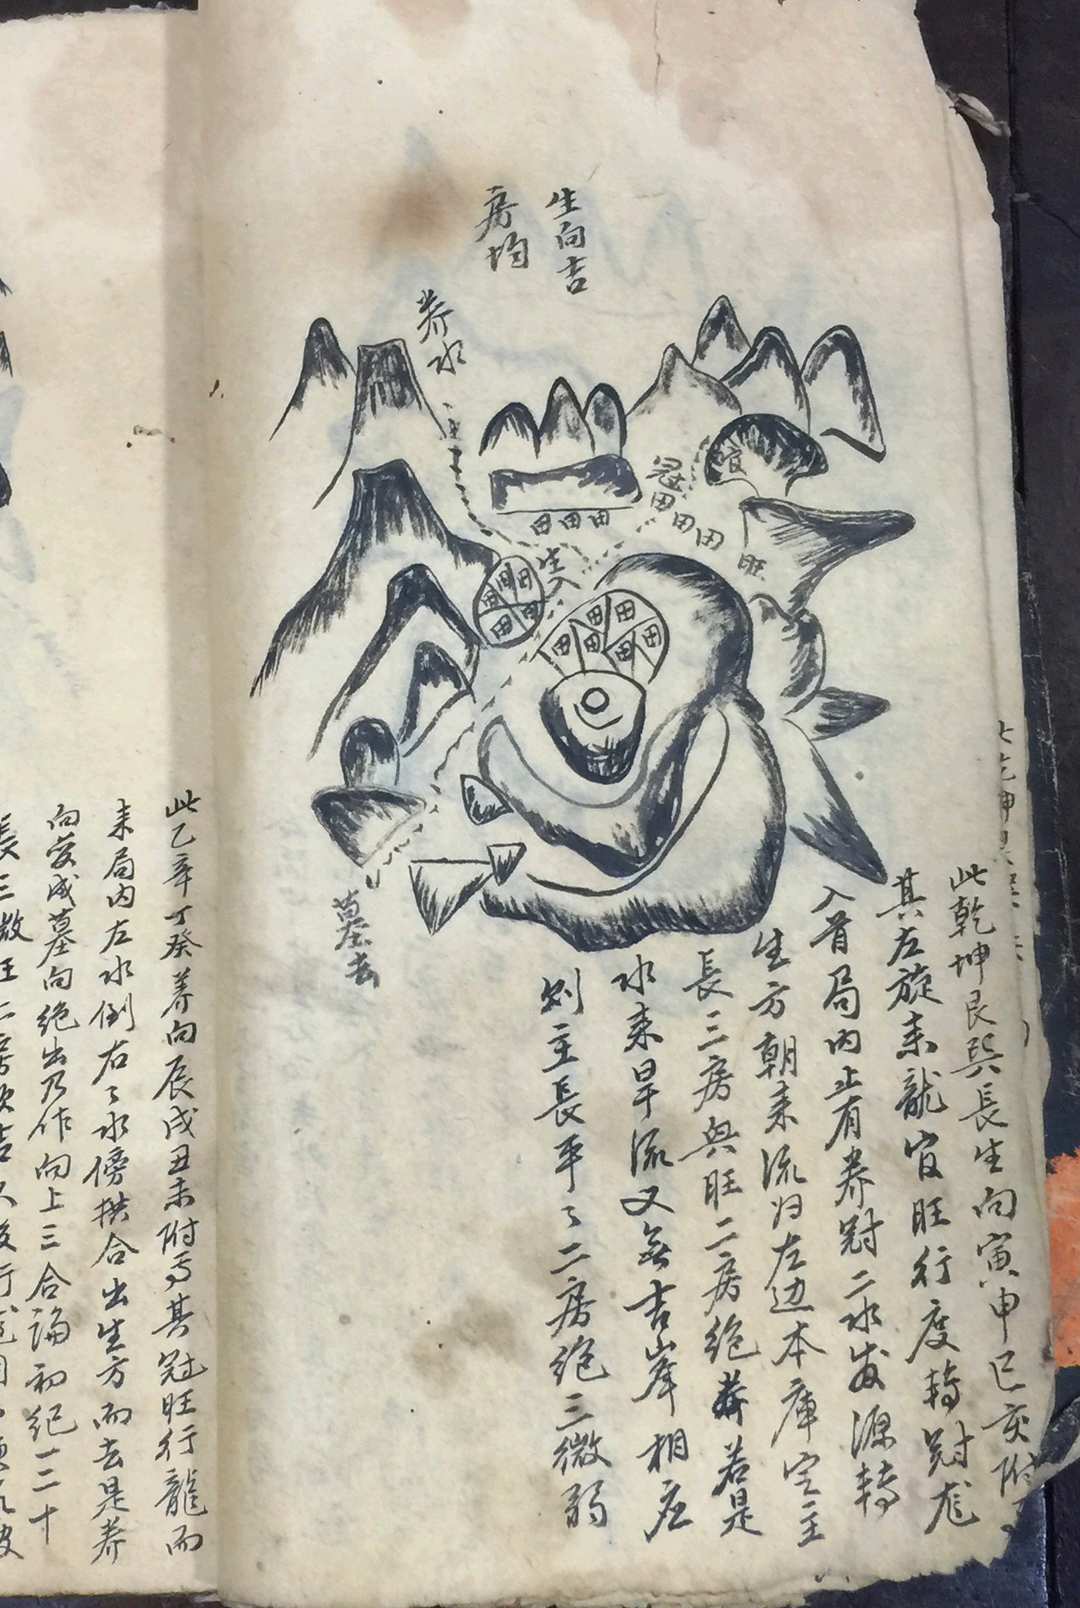 生向吉
房均
养水
冠
田田田田
官
旺
田田田
生入
田田田田田
田田田田田田
墓去
此乾坤艮巽長生向寅申巳亥附
其左旋来龍官旺行度轉冠
入首局内止有养冠二水发源轉
生方朝来流归左边本庫定主
長三房興旺二房絶
若是
水来旱流又無吉峯相应
则主長平々二房絶三微弱
此乙辛丁癸养向辰戌丑未附焉其冠旺行龍而
来局内左水倒右々水傍拱合出生方而去是养
向变成墓向绝出乃作向上三合論初紀一二十
長三
旺二房